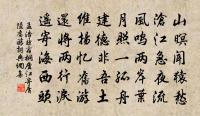 山暝聞猿愁
滄江急夜流
風鳴兩岸葉
月照一孤舟
建德非吾土
維揚憶舊遊
還將兩行淚
遙寄海西頭
孟浩然宿桐廬江寄廣
陵舊遊詩詞典網集